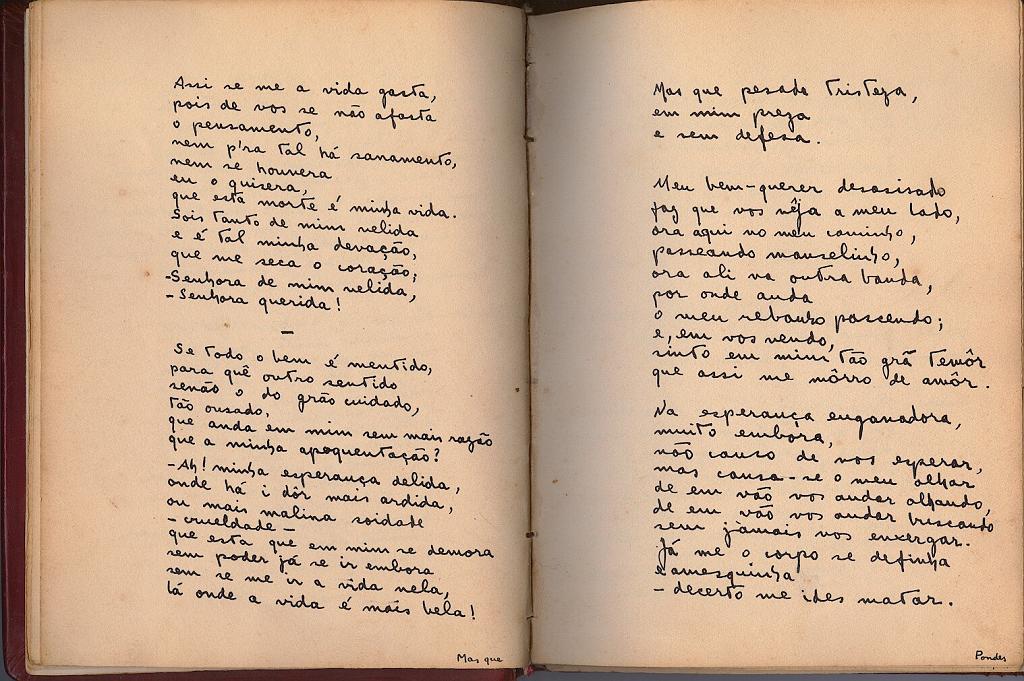 Assi se me a vida gasta,
pois de vos se não afasta
o pensamento,
nem p'ra tal há sanamento,
nem se houvera
eu o quisera,
que esta morte é minha vida.
Sois tanto de mim velida
e é tal minha devação,
que me seca o coração;
-Senhora de mim velida,
-Senhora querida!
—
Se todo o bem é mentido,
para quê outro sentido
senão o do grão cuidado,
tão ousado,
que anda em mim sem mais razão
que a minha apoquentação?
-Ah! minha esperança delida,
onde há i dôr mais ardida,
ou mais malina soidade
- crueldade -
que esta que em mim se demora
sem poder já se ir embora
sem se me ir a vida nela,
lá onde a vida é mais bela!
Mas que
Mas que pesada tristeza,
em mim preza
e sem defesa.
Meu bem-querer desasisado
faz que vos vêja a meu lado,
ora aqui no meu caminho,
passeando manselinho,
ora ali na outra banda,
por onde anda
o meu rebanho pascendo;
e, em vos vendo,
sinto em mim tão grã temôr
que assi me môrro de amôr.
Na esperança enganadora,
muito embora,
não canso de vos esperar,
mas cansa-se o meu olhar
de em vão vos andar olhando,
de em vão vos andar buscando
sem jamais vos enxergar.
Já me o corpo se definha
e amesquinha
- decerto me ides matar.
Pondes